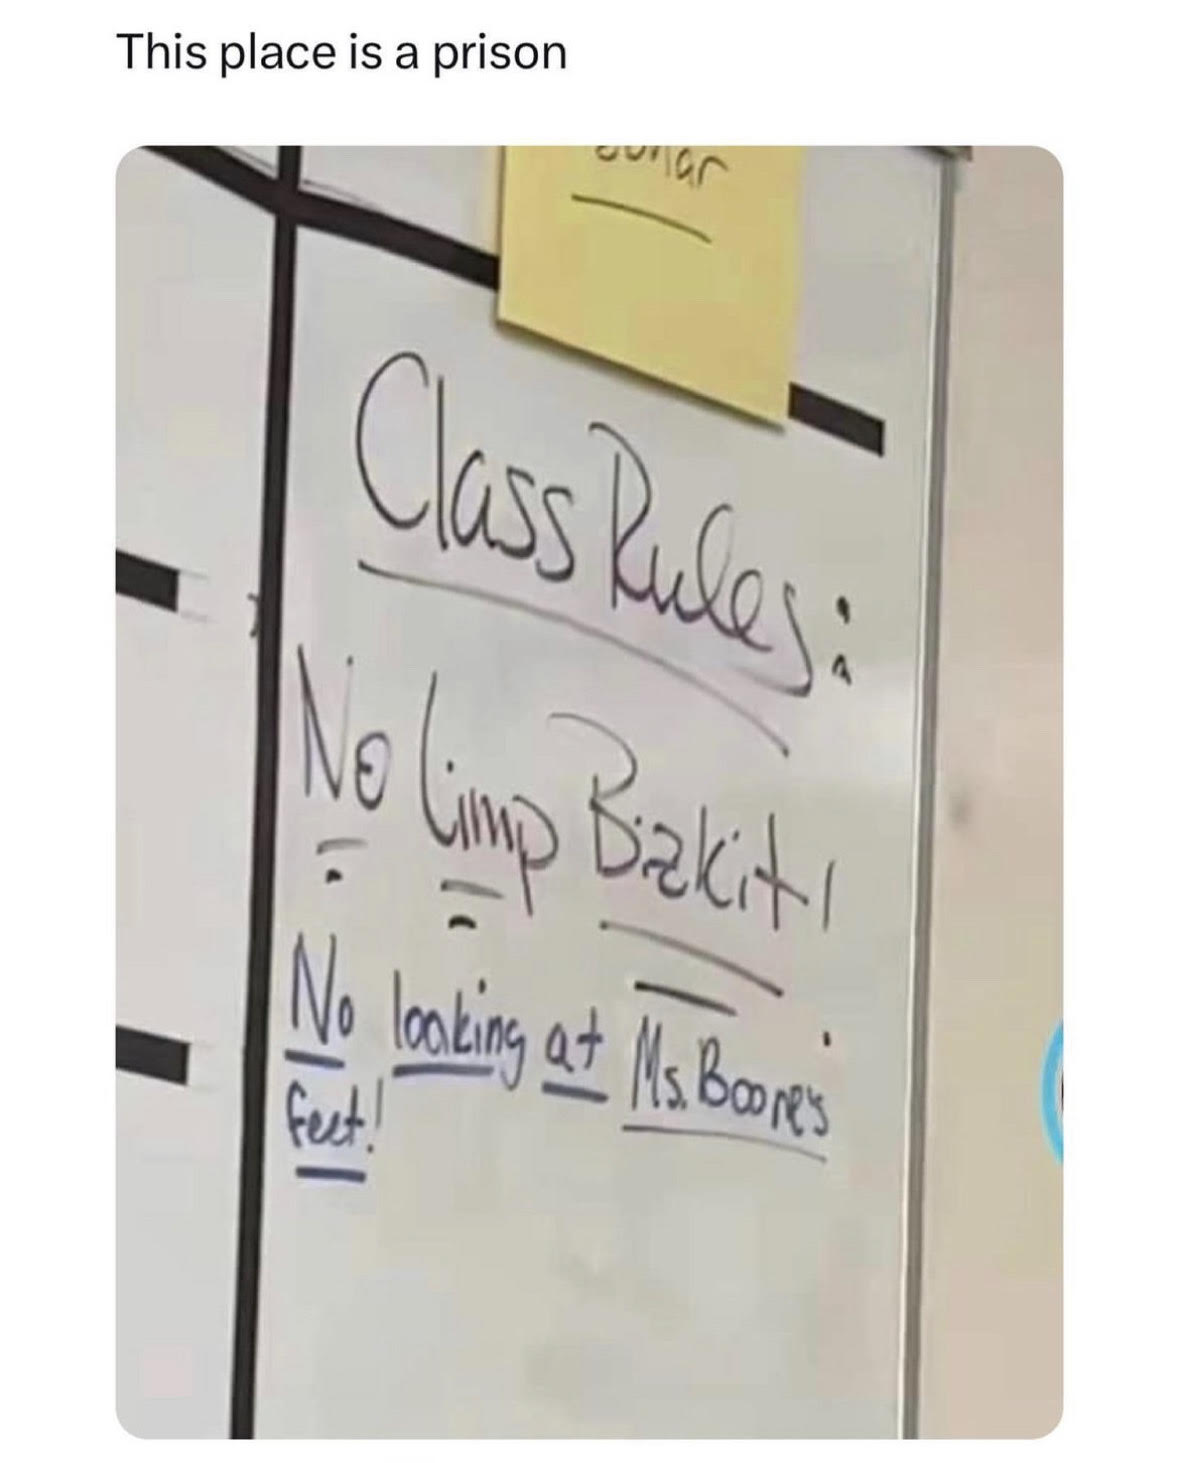 This place is a prison
Class Rules:
No Limp Bizkit!
No looking at Ms. Boone's
feet!